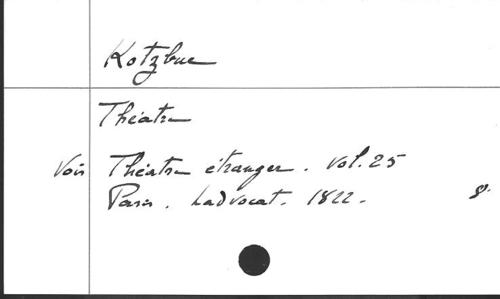 Kotzbue
Théatre
Voir Théatre étranger. Vol. 25
Paris. Ladvocat. 1822.
8°